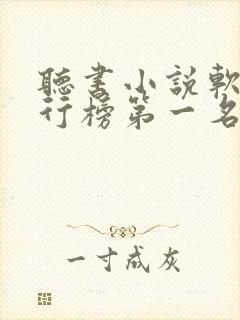 聽書小說軟
行榜第一名
一寸成灰